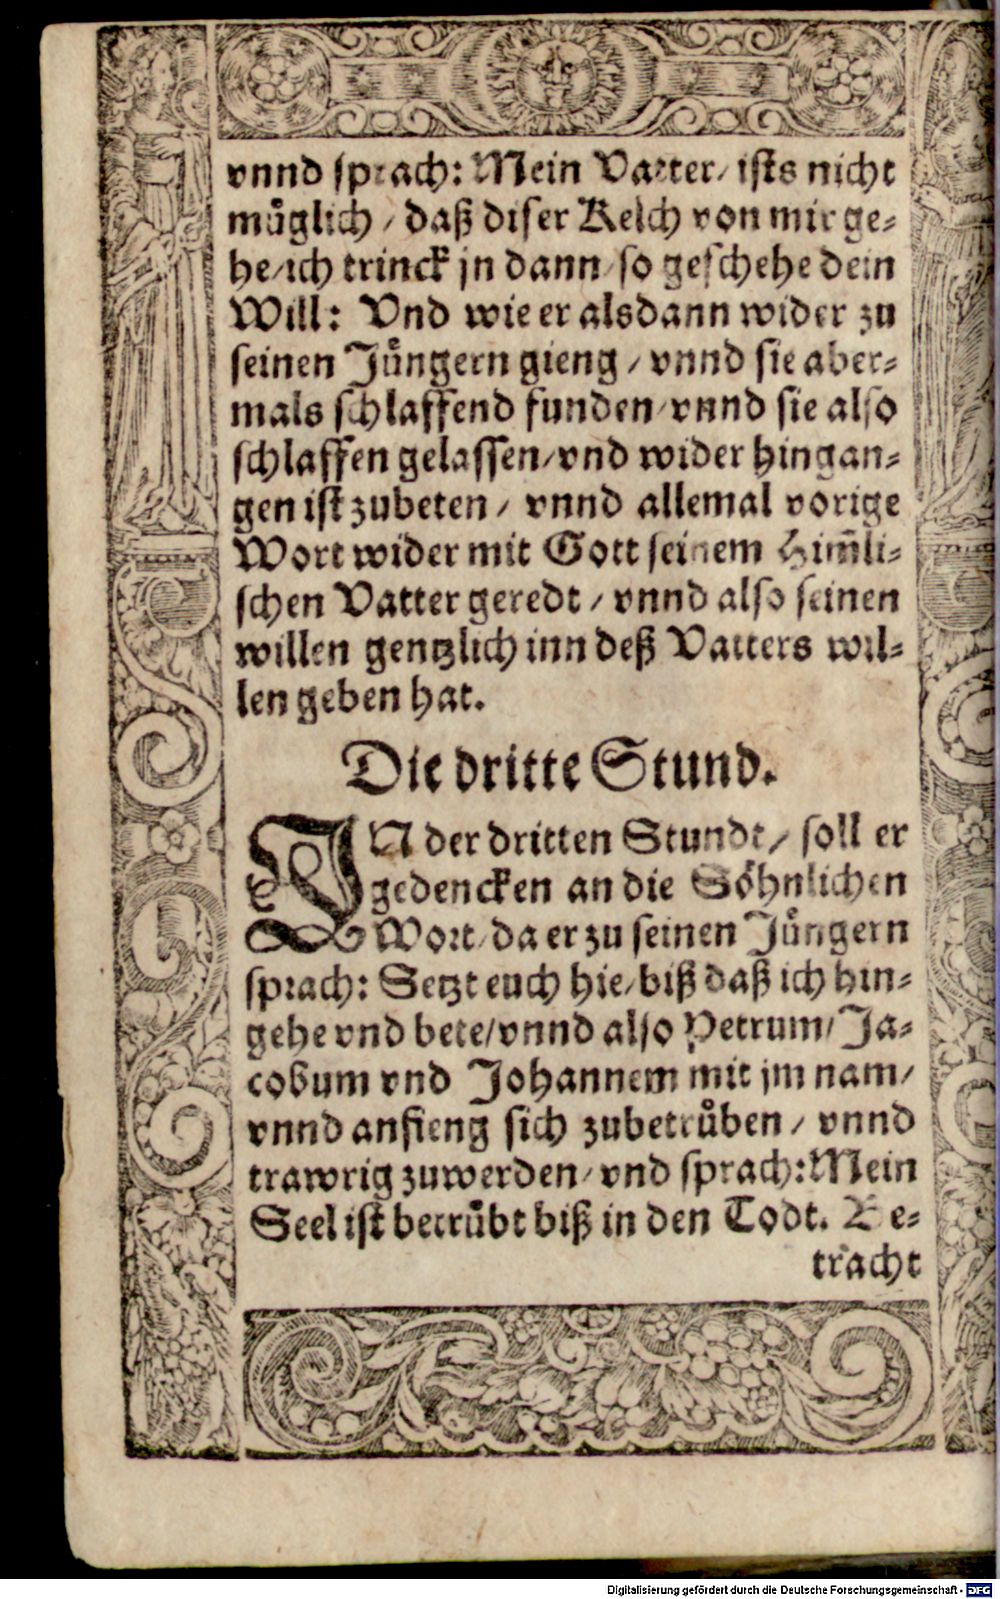 vnnd sprach: Mein Vatter/ ists nicht
müglich / daß diser Kelch von mir ge-
he/ich trinck jn dann/so geschehe dein
Will: Vnd wie er alsdann wider zu
seinen Jüngern gieng / vnnd sie aber-
mals schlaffend funden/vnnd sie also
schlaffen gelassen/vnd wider hingan-
gen ist zubeten / vnnd allemal vorige
Wort wider mit Gott seinem Him̃li-
schen Vatter geredt / vnnd also seinen
willen gentzlich inn deß Vatters wil-
len geben hat.
Die dritte Stund.
IN der dritten Stundt/ soll er
gedencken an die Söhnlichen
Wort/da er zu seinen Jüngern
sprach: Setzt euch hie/biß daß ich hin-
gehe vnd bete/vnnd also Petrum/Ja-
cobum vnd Johannem mit jm nam/
vnnd anfieng sich zubetrůben / vnnd
trawrig zuwerden/vnd sprach:Mein
Seel ist betrübt biß in den Todt. Be-
tracht
Digitalisierung gefördert durch die Deutsche Forschungsgemeinschaft - DFG